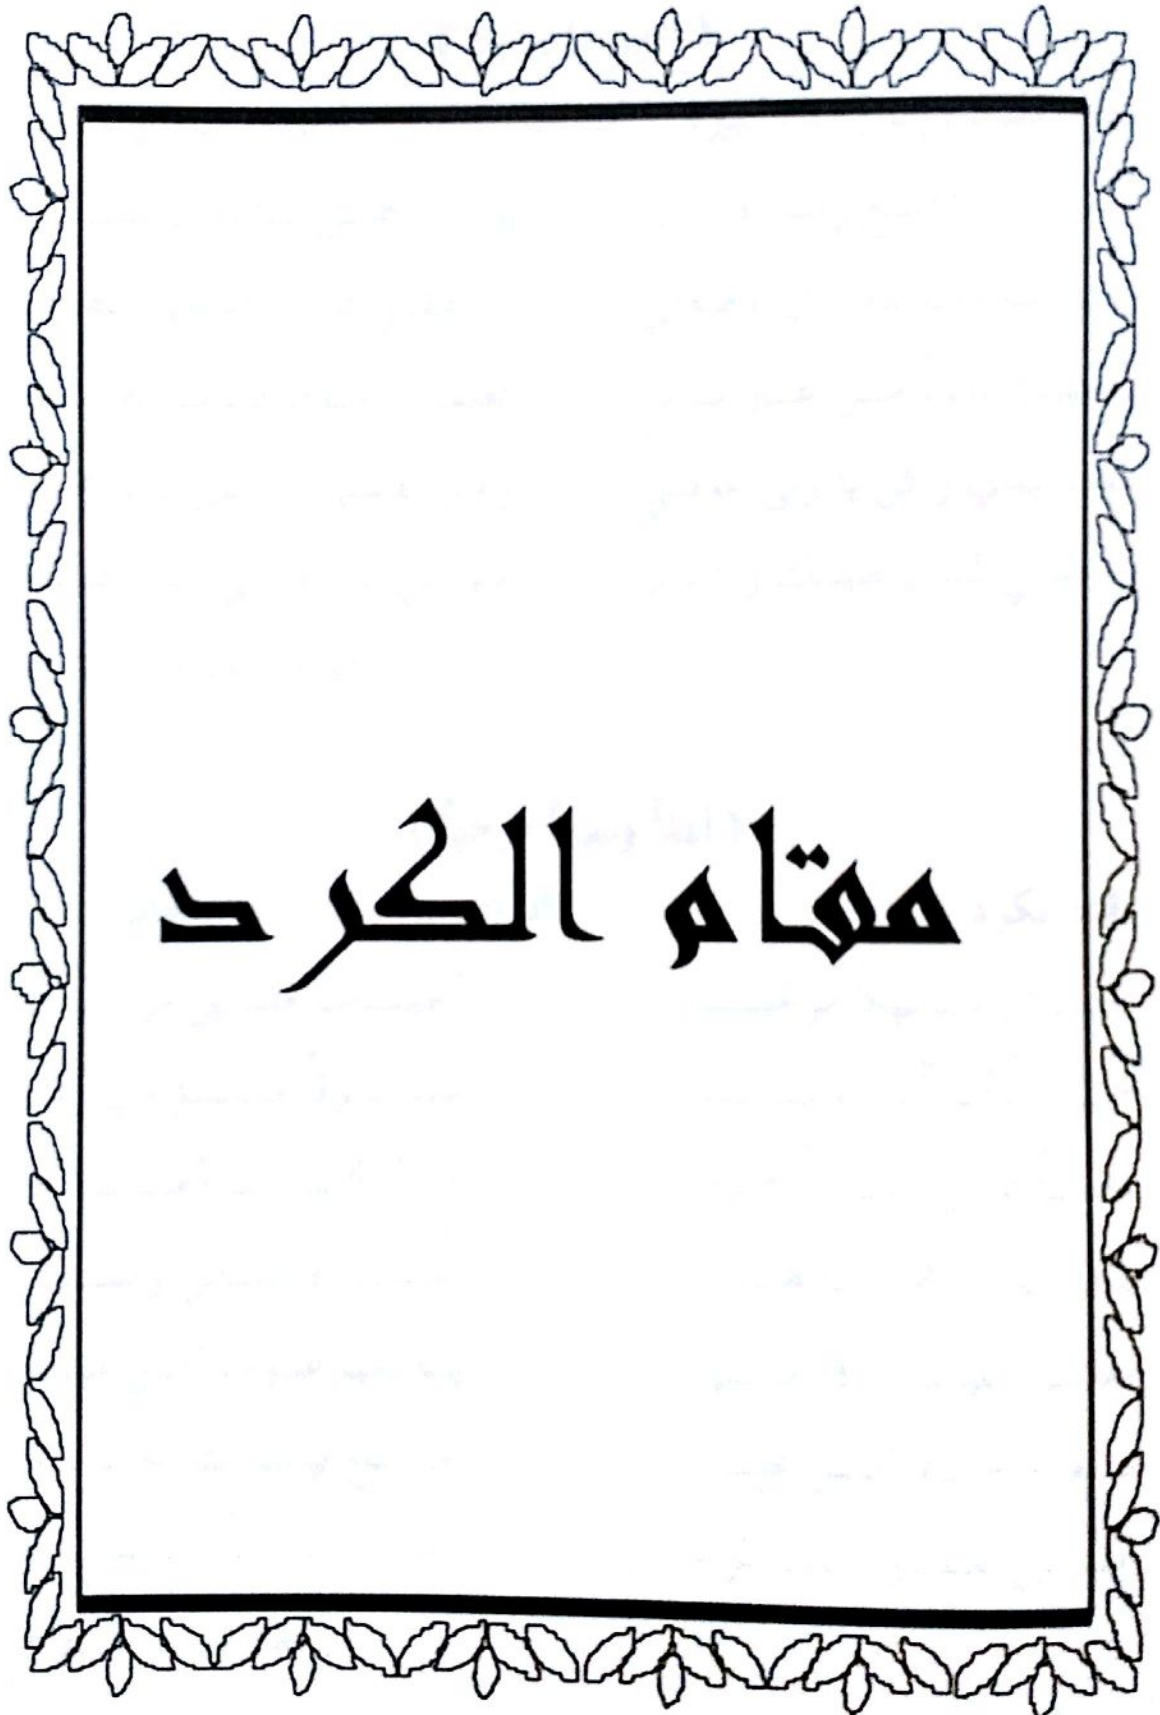 مقام الكرد